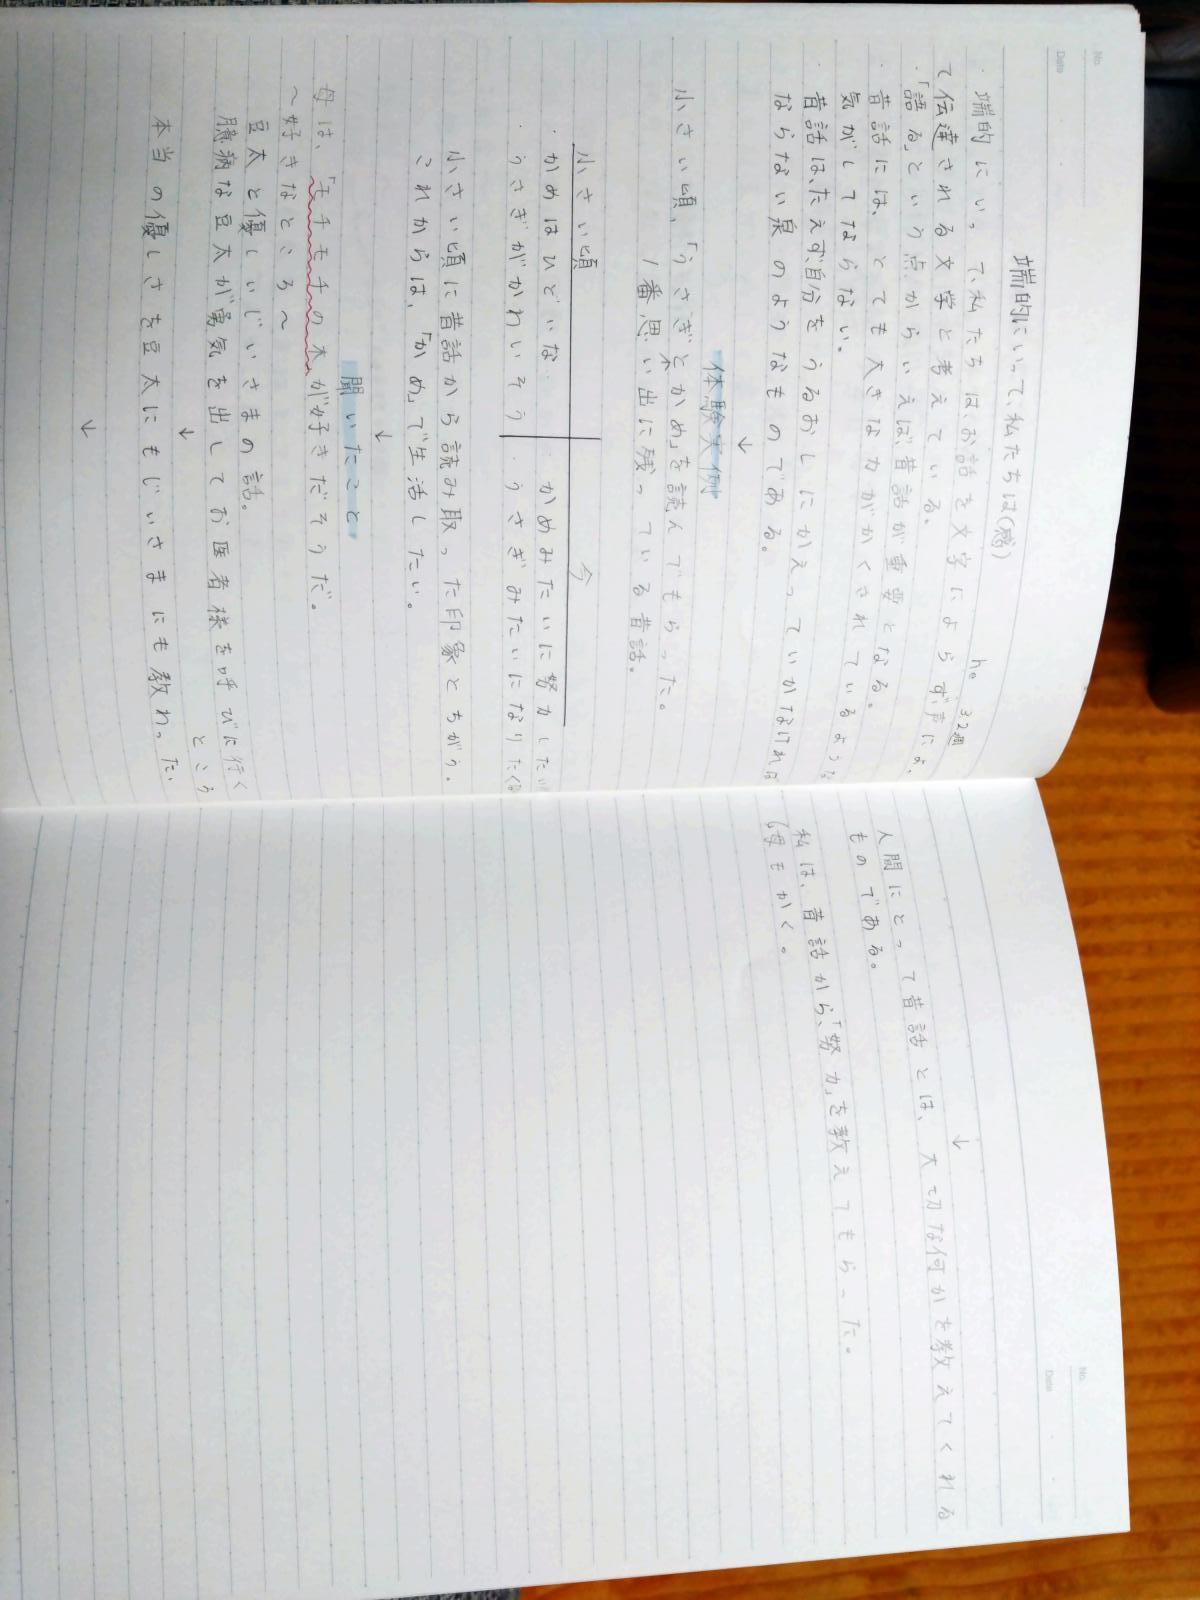 No.
Date
端的にいって、私たちは(感)
no 32週
・端的にいって、私たちは、お話を文字によらず、声によっ
て伝達される文学と考えている。
・「語る」という点からいえば、昔話が重要となる。
・昔話には、とても大きな力がかくされているような
気がしてならない。
・昔話は、たえず、自分をうるおしにかえっていかなければ
ならない泉のようなものである。
↓
体験実例
小さい頃、「うさぎとかめ」を読んでもらった。
1番思い出に残っている昔話。
小さい頃 今
・かめはひどいな ・かめみたいに努力したい
・うさぎがかわいそう ・うさぎみたいになりたくな
小さい頃に昔話から読み取った印象とちがう。
これからは、「かめ」で生活したい。
↓
聞いたこと
母は、「モチモチの木」が好きだそうだ。
〜好きなところ〜
豆太と優しいじいさまの話。
臆病な豆太が勇気を出してお医者様を呼びに行く
ところ
↓
本当の優しさを豆太にもじいさまにも教わった
↓
No.
Date
↓
人間にとって昔話とは、大切な何かを教えてくれる
ものである。
私は、昔話から、「努力」を教えてもらった。
(母もかく。